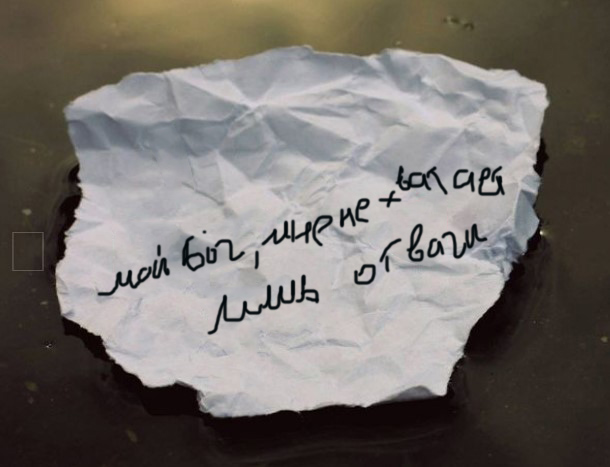 мой Бог, мне не хватает
лишь отваги